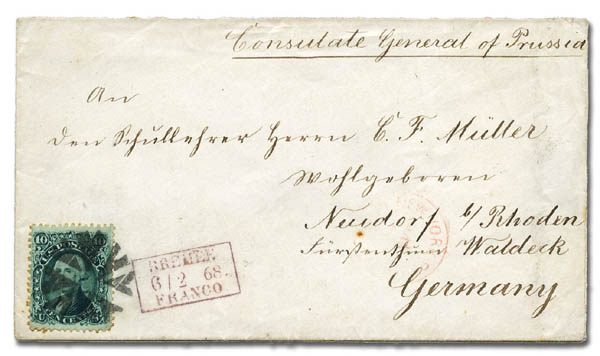 Consulate General of Prussia
An
den Schullehrer Herrn C. F. Müller
Wohlgeboren
Neudorf b/ Rhoden
Fürstenthum Waldeck
Germany
10 10
U.S. POS
BREMEN
6 / 2 68
FRANCO